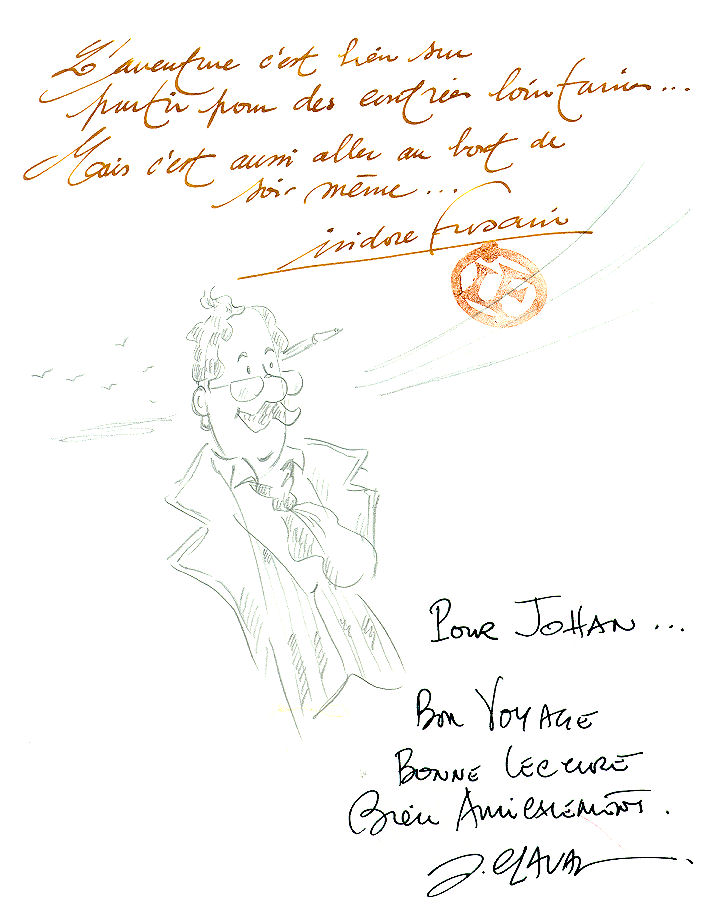 L'aventure c'est bien sur
partir pour des contrées lointaines...
Mais c'est aussi aller au bout de
soi-même...
isidore
Pour JOHAN...
Bon VOYAGE
BONNE LECTURE
Bien AmiCALEMENT.